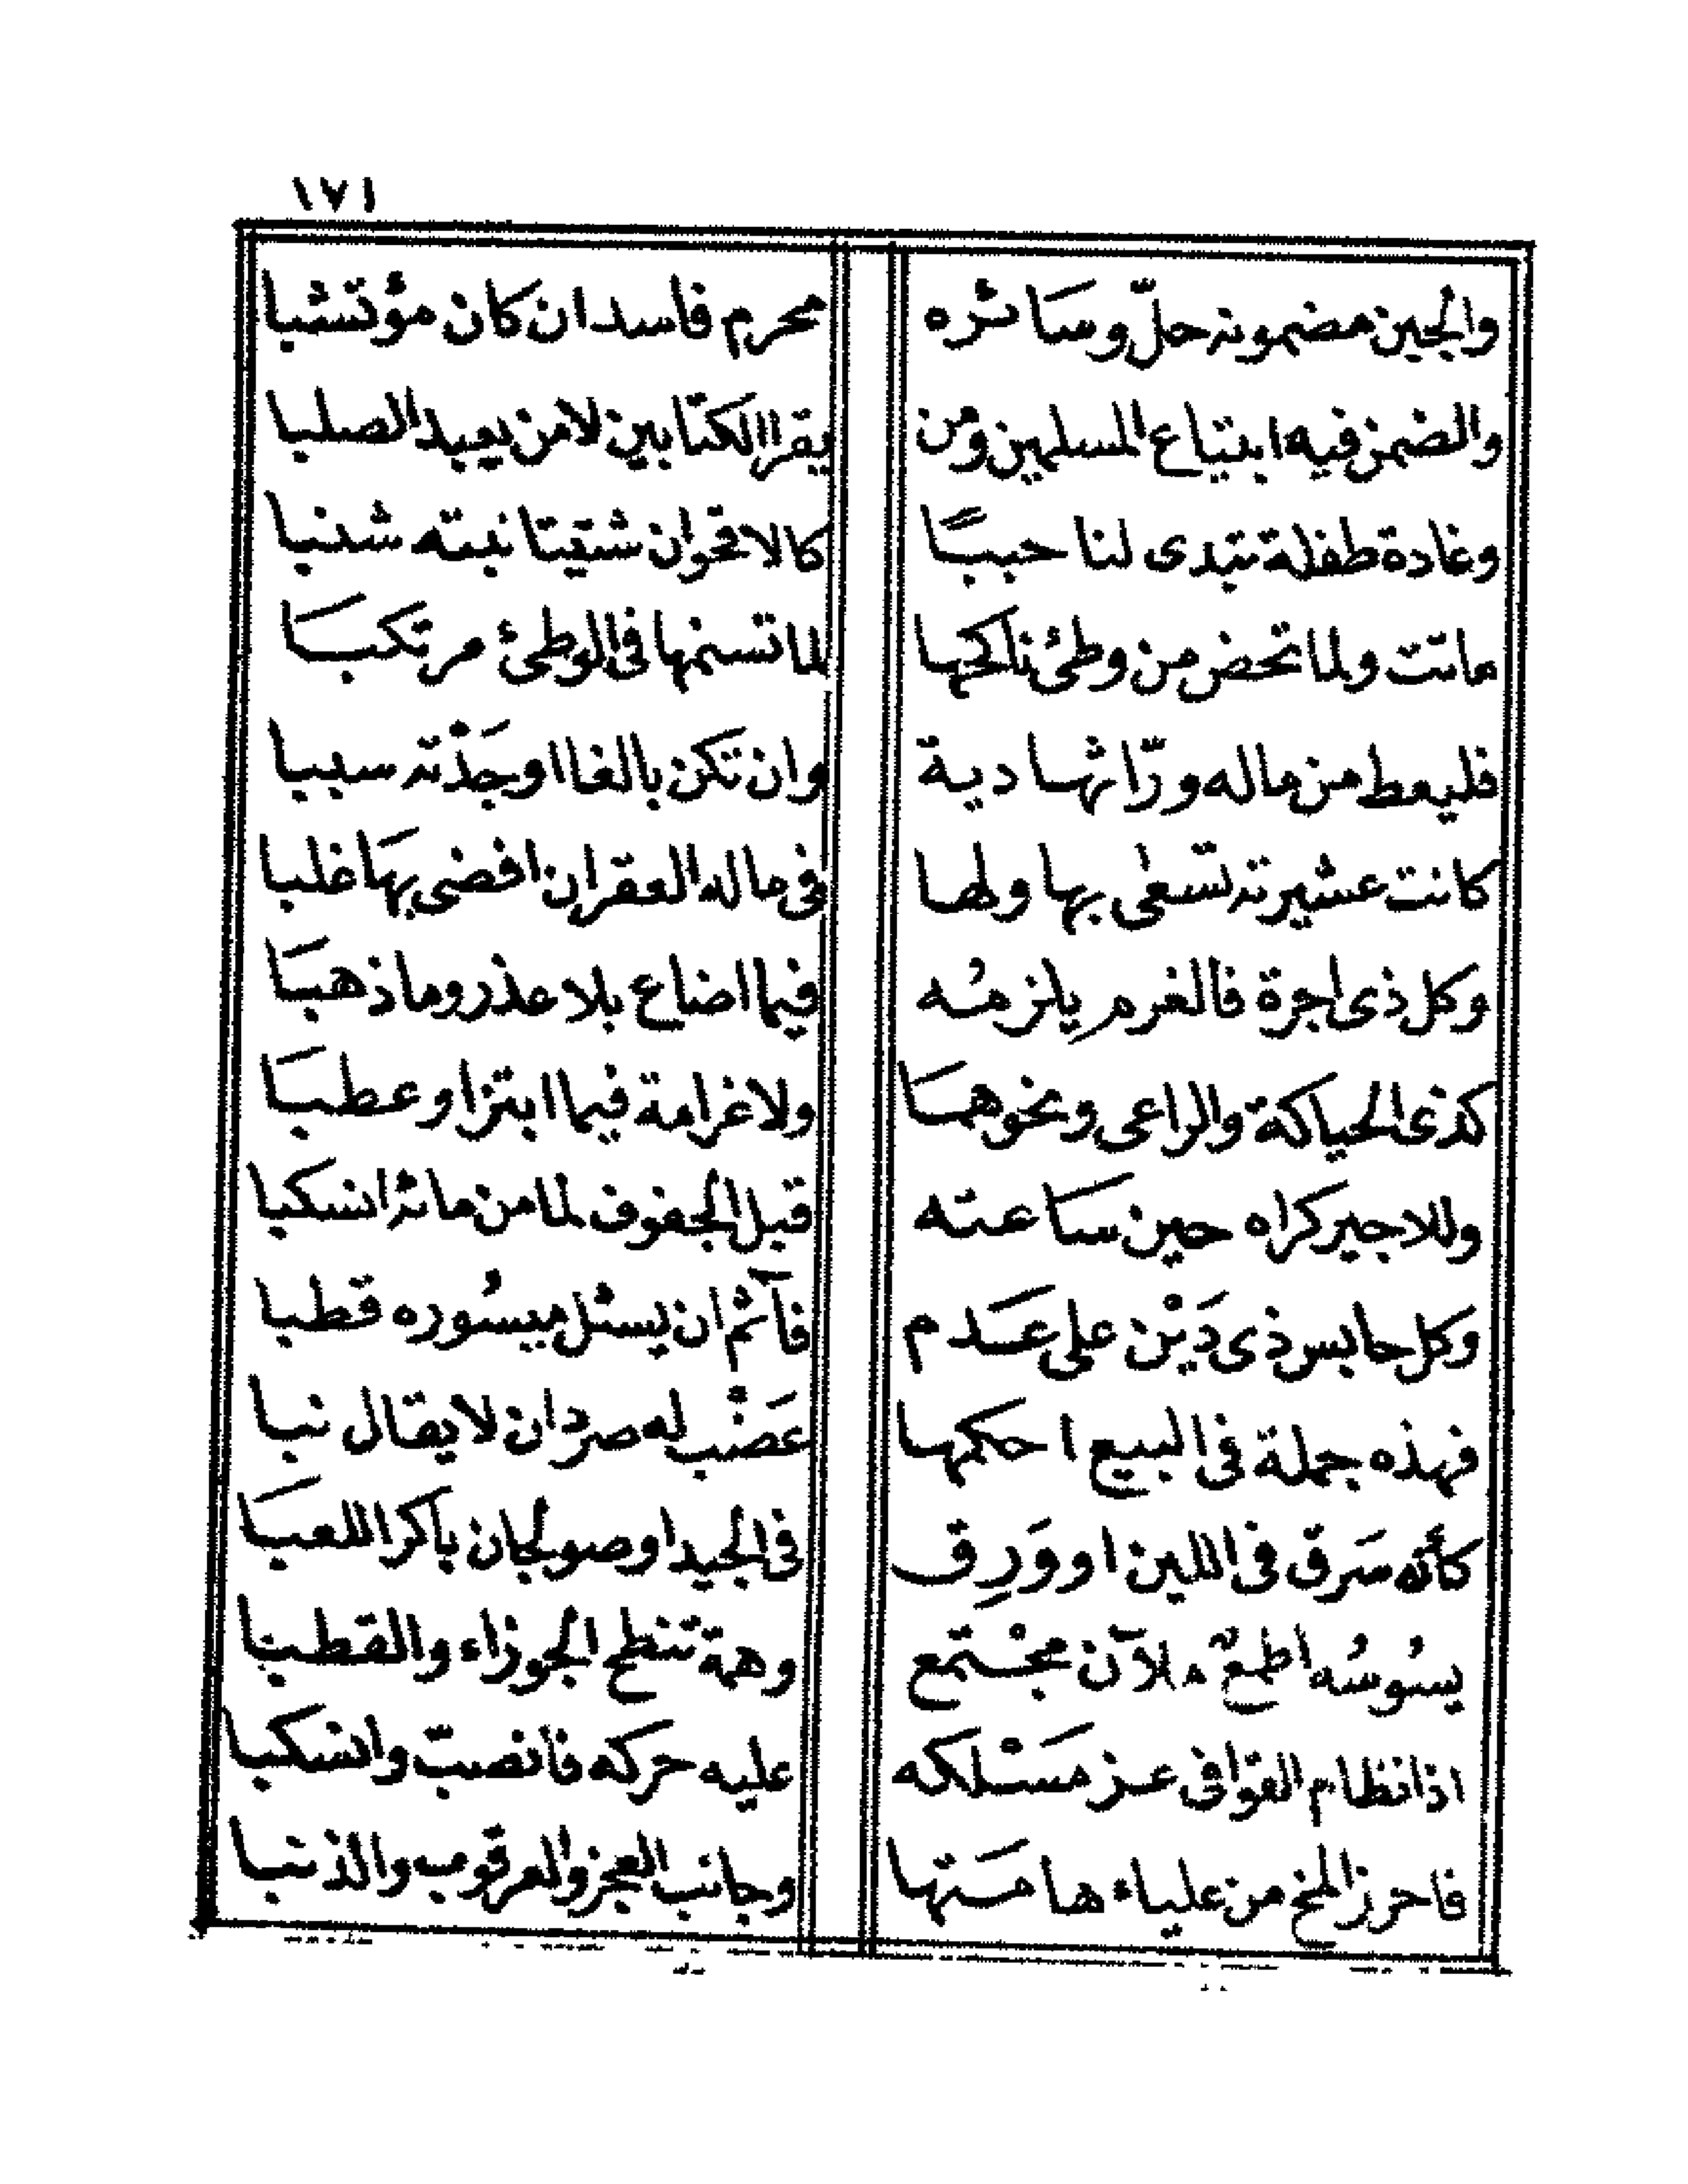 ١٧١
والجبن مضمونه حلّ وسَائره محرم فاسد ان كان مؤتشبا
والضمن فيه ابتياع المسلمين ومن يقرا الكتابين لا من يعبد الصلبا
وغادة طفلة تبدى لنا حببًا كالاقحوان شتيتا نبته شنبا
ماتت ولما تحض من وطئ ناكحها لما تسنمها فى الوطئ مرتكبَا
فليعط من ماله ورّاثها دية وان تكن بالغا اوجَدْته سببا
كانت عشيرته تسعى بها ولها فى ماله العقر ان افضى بهَا غلبا
وكل ذى اجرة فالغرم يلزمُه فيما اضاع بلا عذر وما ذهبَا
كذى الحياكة والراعى ونحوهمَا ولا غرامة فيما ابتز او عطبَا
وللاجير كراه حين سَاعته قبل الجفوف لما من مائه انسكبا
وكل حابس ذى دَيْن على عَدم فآثم ان يسئل ميسُوره قطبا
فهذه جملة فى البيع احكمها عَضْب له صردان لا يقال نبا
كأنه سَرق فى اللين او وَرِق فى الجيد او صولجان باكر اللعبَا
يسُوسُه المع ملآن مجْتمع وهمة تنطح الجوزاء والقطبا
اذا نظام القوافى عز مَسْلكه عليه حركه فانصبّ وانسكبا
فاحرز المخ من علياء هامَتها وجانب العجز والعرقوب والذنبا